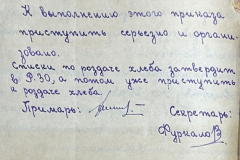 К выполнению этого приказа
приступить серьезно и органи
зовано.
Списки по роздаче хлеба затвердит
в Р.30, а потом уже приступить
к роздаче хлеба.
Примарь: Секретарь:
Фуркало В